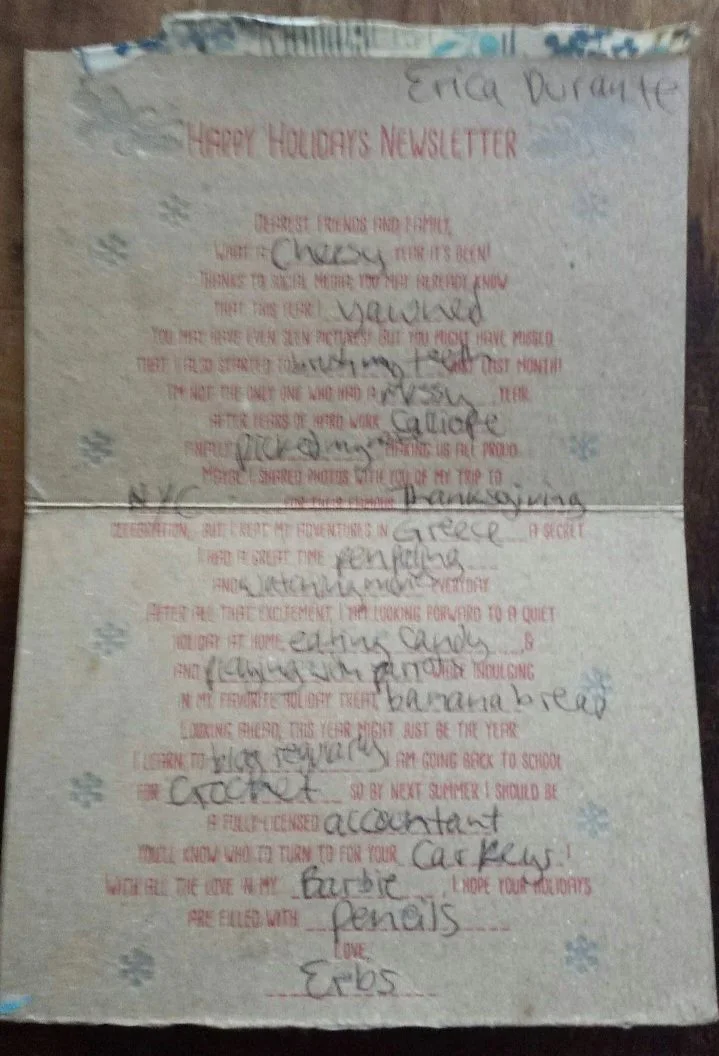 Erica Durante
HAPPY HOLIDAYS NEWSLETTER
DEAREST FRIENDS AND FAMILY,
WHAT A Cheesy YEAR IT'S BEEN!
THANKS TO SOCIAL MEDIA, YOU MAY ALREADY KNOW
THAT THIS YEAR I yawned
YOU MAY HAVE EVEN SEEN PICTURES! BUT YOU MIGHT HAVE MISSED
THAT I ALSO STARTED TO brush my teeth JUST LAST MONTH!
I'M NOT THE ONLY ONE WHO HAD A messy YEAR.
AFTER YEARS OF HARD WORK, Calliope
FINALLY picked my MAKING US ALL PROUD.
MAYBE I SHARED PHOTOS WITH YOU OF MY TRIP TO
NYC FOR THEIR FAMOUS Thanksgiving
CELEBRATION, BUT I KEPT MY ADVENTURES IN Greece A SECRET.
I HAD A GREAT TIME penpaling
AND watching EVERYDAY.
AFTER ALL THAT EXCITEMENT, I AM LOOKING FORWARD TO A QUIET
HOLIDAY AT HOME eating Candy &
AND playing with parrots WHILE INDULGING
IN MY FAVORITE HOLIDAY TREAT, banana bread
LOOKING AHEAD, THIS YEAR MIGHT JUST BE THE YEAR
I LEARN TO blog I AM GOING BACK TO SCHOOL
FOR Crochet SO BY NEXT SUMMER I SHOULD BE
A FULLY-LICENSED accountant
YOU'LL KNOW WHO TO TURN TO FOR YOUR Car Keys!
WITH ALL THE LOVE IN MY Barbie, I HOPE YOUR HOLIDAYS
ARE FILLED WITH Pencils
LOVE,
Erbs